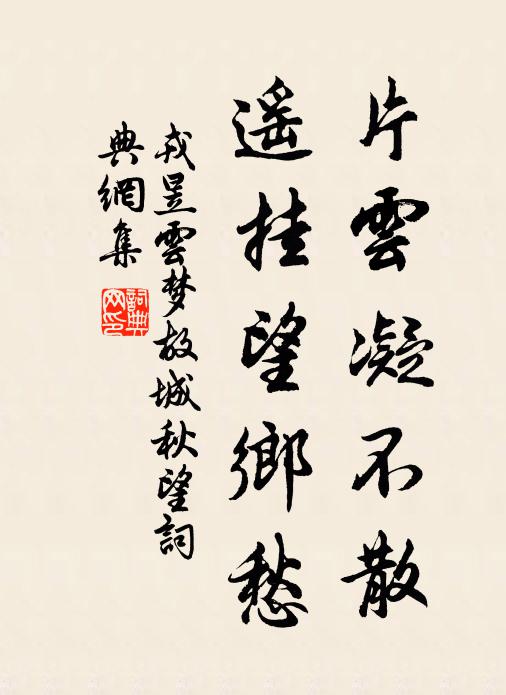 片雲凝不散
遥挂望鄉愁
戎昱雲梦故城秋望詞
典網集
詞典网印